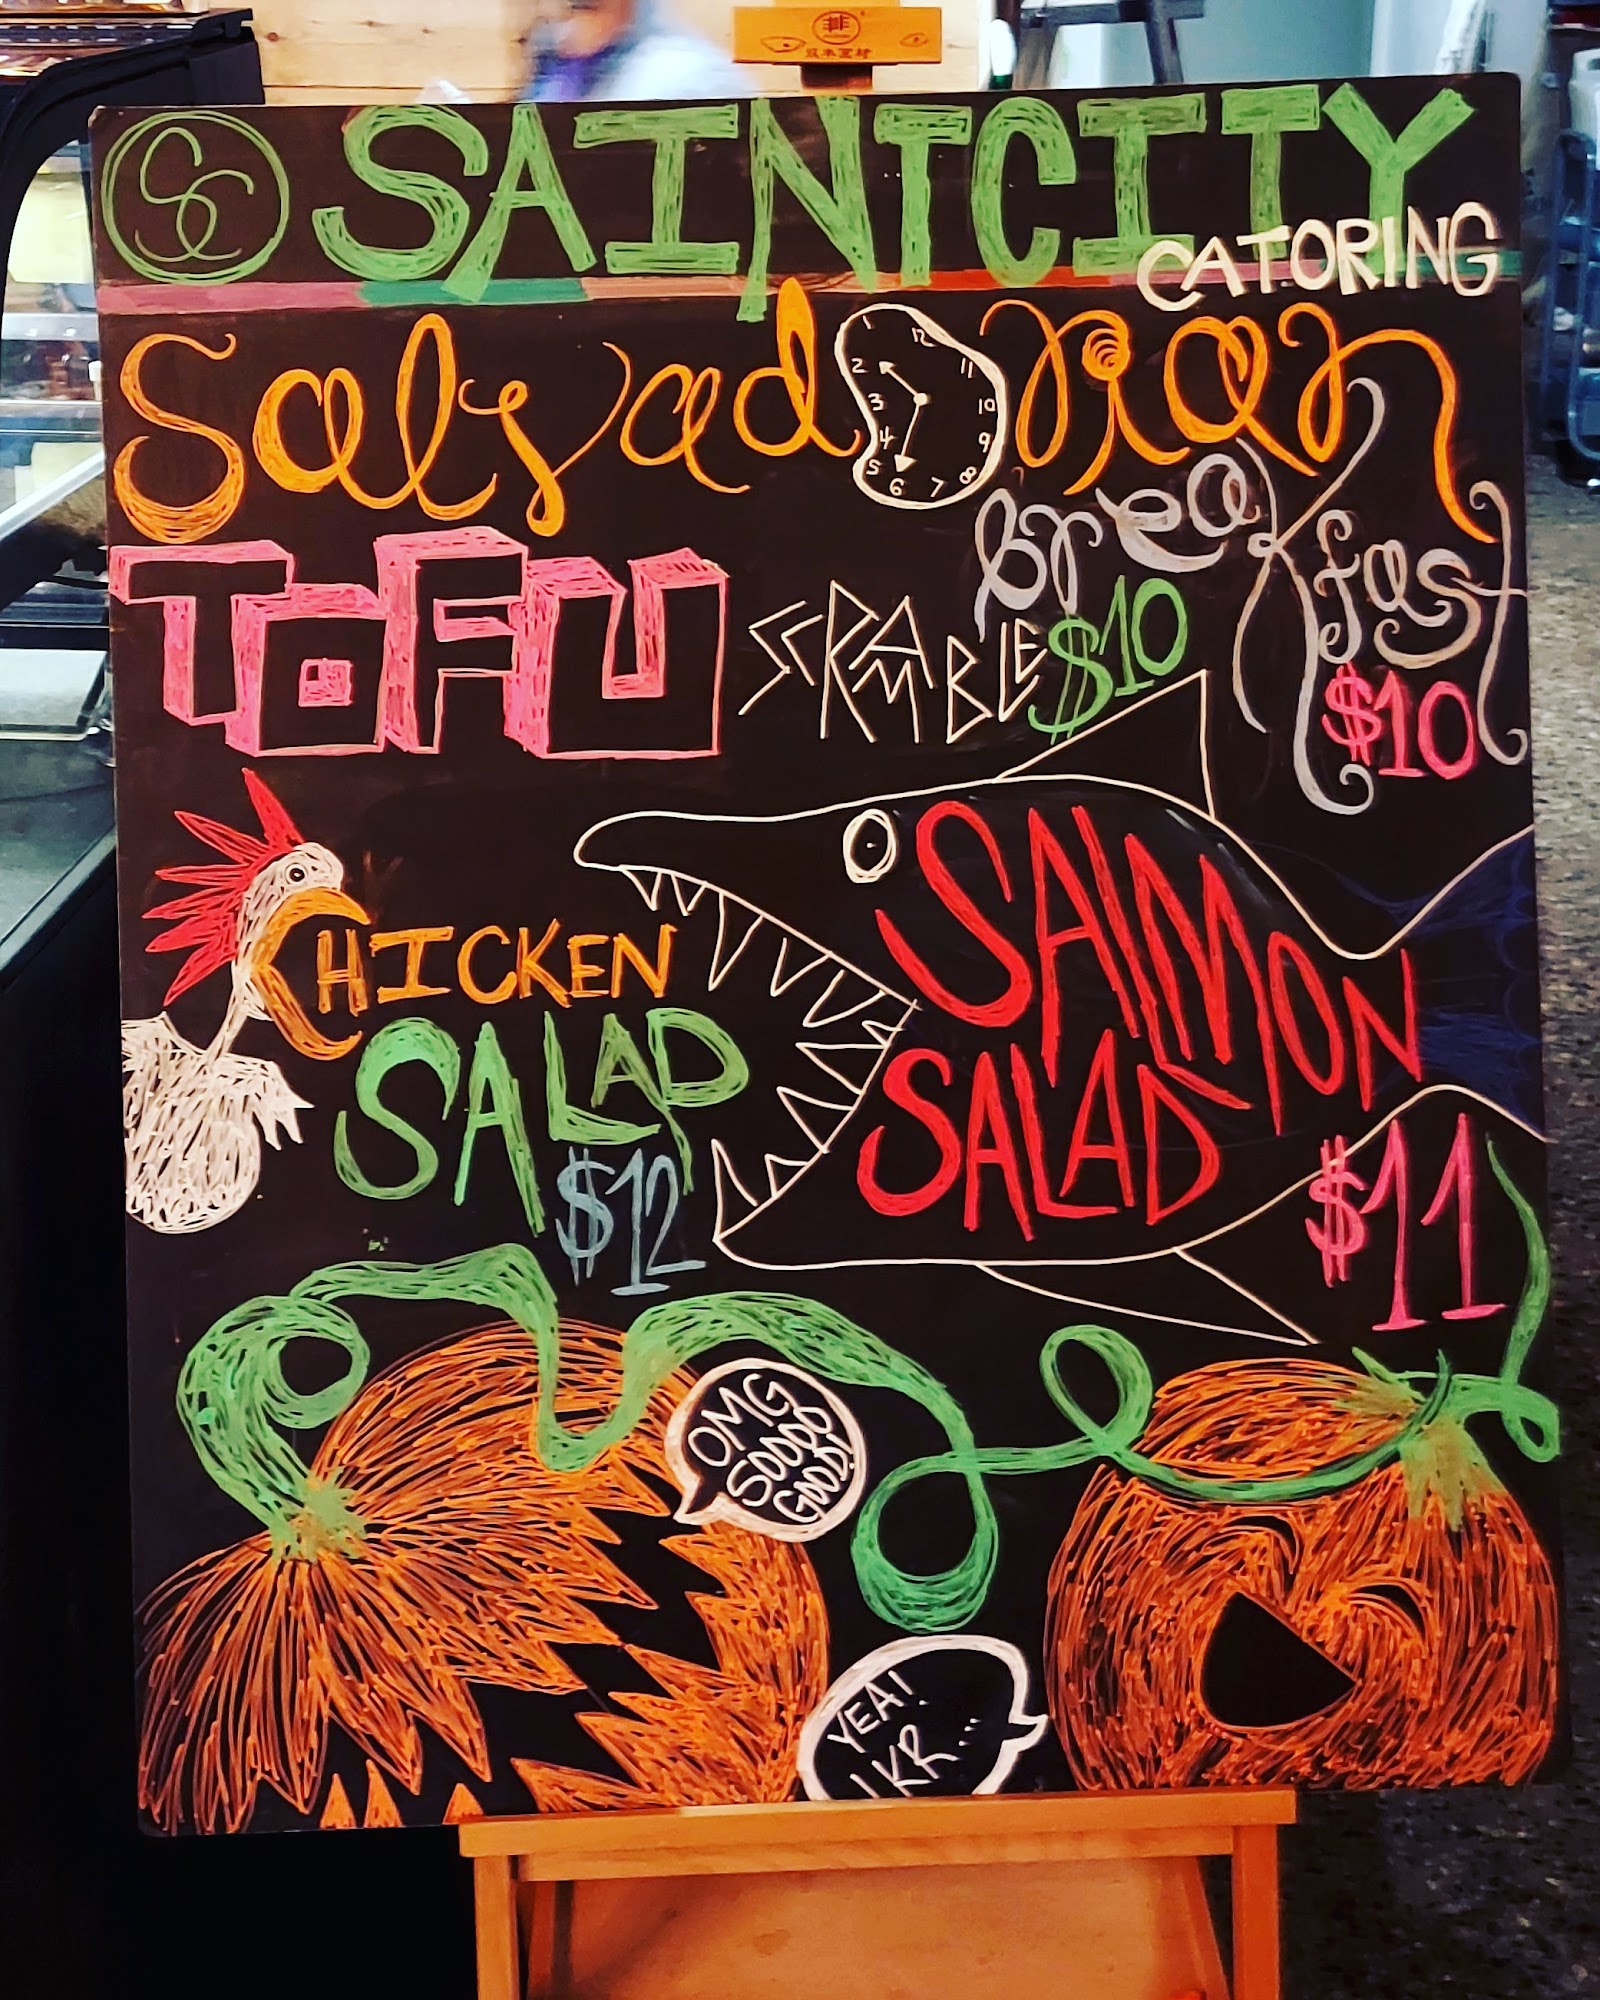 SC SAINTCITY
CATORING
Salvadorian
12 1 2 3 4 5 6 7 8 9 10 11
Breakfast
$10
TOFU SCRAMBLE $10
CHICKEN
SALAD
$12
SALMON
SALAD
$11
OMG
SOOOO
GOOD!
YEA!
IKR...